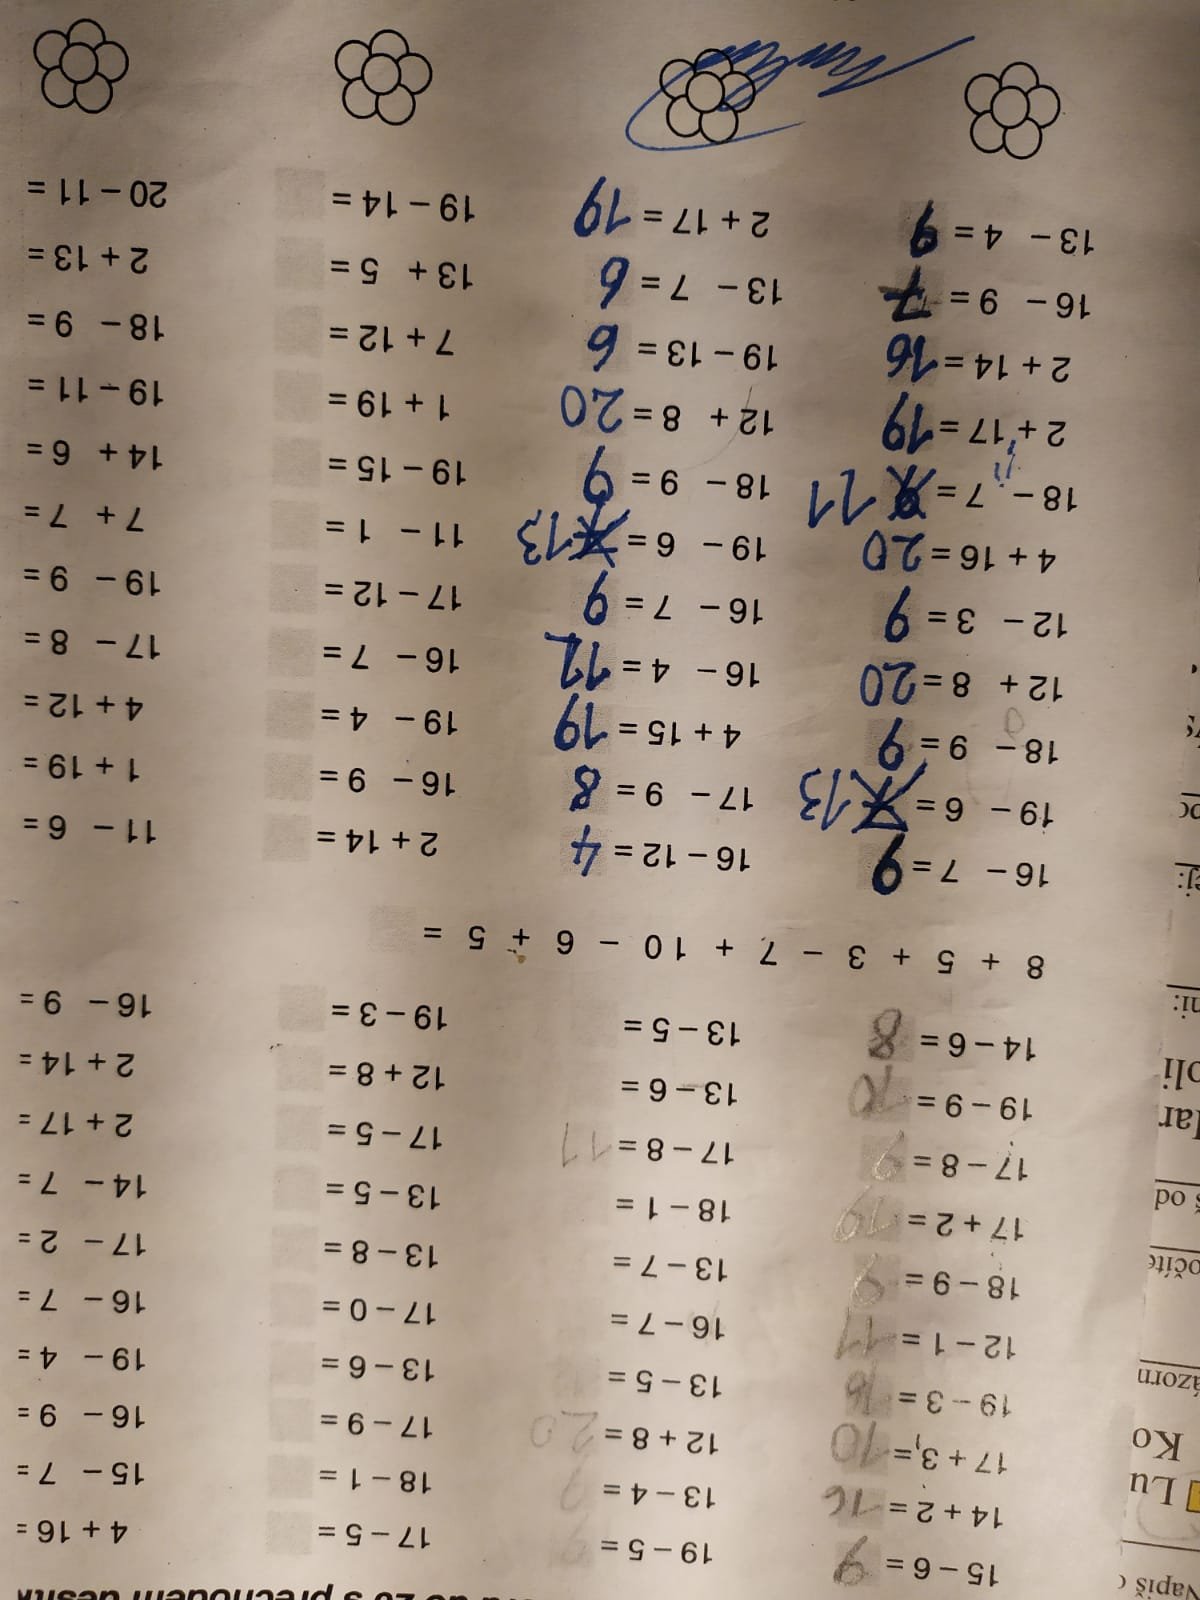 do 20 s přechodem desítk
Napiš
15 – 6 = 9 19 – 5 = 17 – 5 = 4 + 16 =
14 + 2 = 16 13 – 4 = 9 18 – 1 = 15 – 7 =
Lu
17 + 3 = 10 12 + 8 = 20 17 – 9 = 16 – 9 =
Ko
19 – 3 = 16 13 – 5 = 13 – 6 = 19 – 4 =
12 – 1 = 11 16 – 7 = 17 – 0 = 16 – 7 =
18 – 9 = 9 13 – 7 = 13 – 8 = 17 – 2 =
očíte
17 + 2 = 19 18 – 1 = 13 – 5 = 14 – 7 =
š od
17 – 8 = 9 17 – 8 = 11 17 – 5 = 2 + 17 =
19 – 9 = 10 13 – 6 = 12 + 8 = 2 + 14 =
oli
14 – 6 = 8 13 – 5 = 19 – 3 = 16 – 9 =
8 + 5 + 3 – 7 + 10 – 6 + 5 =
16 – 7 = 9 16 – 12 = 4 2 + 14 = 11 – 6 =
19 – 6 = 13 17 – 9 = 8 16 – 9 = 1 + 19 =
18 – 9 = 9 4 + 15 = 19 19 – 4 = 4 + 12 =
12 + 8 = 20 16 – 4 = 12 16 – 7 = 17 – 8 =
12 – 3 = 9 16 – 7 = 9 17 – 12 = 19 – 9 =
4 + 16 = 20 19 – 6 = 13 11 – 1 = 7 + 7 =
18 – 7 = 11 18 – 9 = 9 19 – 15 = 14 + 6 =
2 + 17 = 19 12 + 8 = 20 1 + 19 = 19 – 11 =
2 + 14 = 16 19 – 13 = 6 7 + 12 = 18 – 9 =
16 – 9 = 7 13 – 7 = 6 13 + 5 = 2 + 13 =
13 – 4 = 9 2 + 17 = 19 19 – 14 = 20 – 11 =